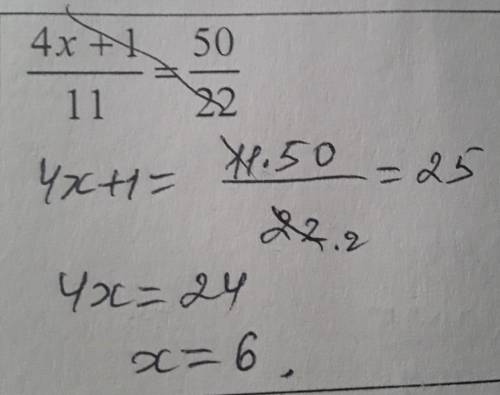 4x + 1 / 11 = 50 / 22
4x+1 = 11.50 / 22.2 = 25
4x = 24
x = 6.